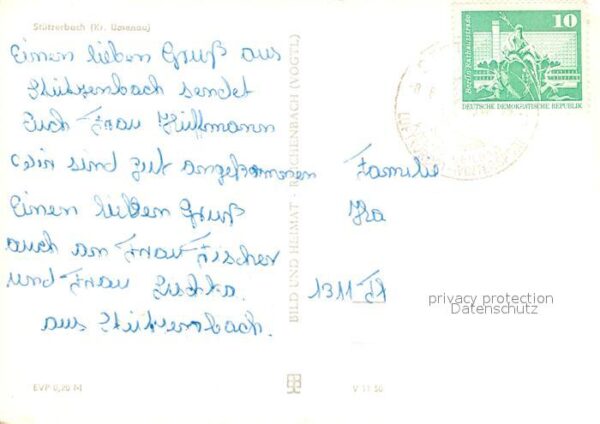 Stützerbach (Kr. Ilmenau)
Einen lieben Gruß aus
Stützenbach sendet
Euch Frau Hüffmann
Wir sind gut angekommenen
Einen lieben Gruß
auch an Frau Fischer
und Frau
aus Stützenbach.
BILD UND HEIMAT · REICHENBACH (VOGTL)
Familie
1311
10
Berlin Rathausstraße
DEUTSCHE DEMOKRATISCHE REPUBLIK
privacy protection
Datenschutz
EVP 0,20 M
V 11 50